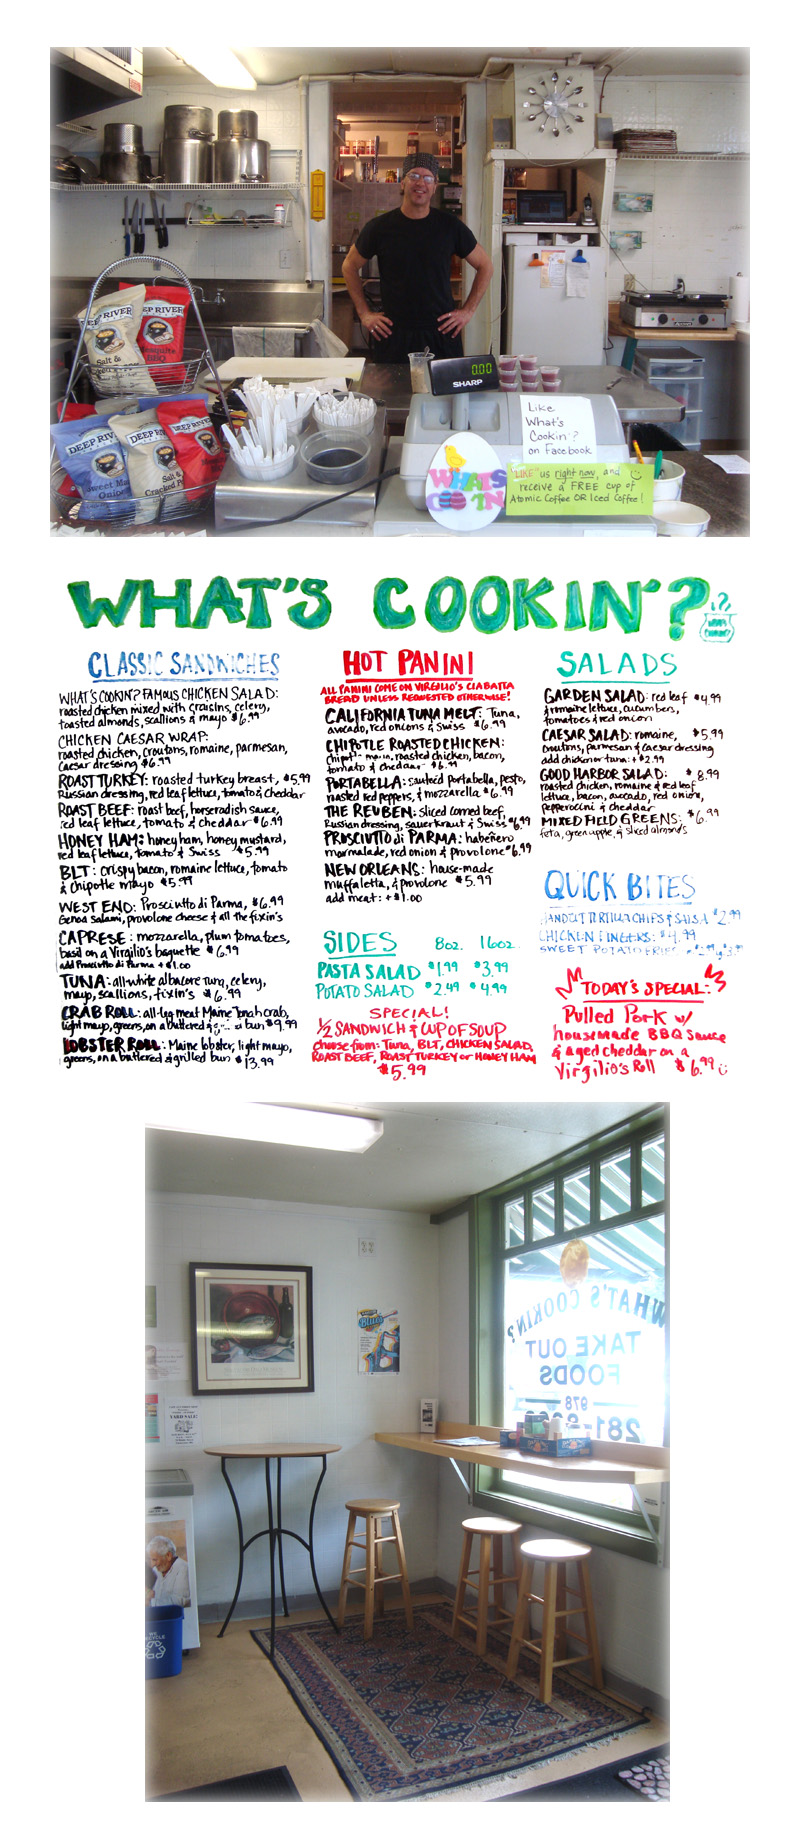 DEEP RIVER
Salt &
DEEP RIVER
Mesquite
BBQ
DEEP RIVER
Sweet Maui
Onion
DEEP RIVER
Salt &
Cracked Pepper
0.00
SHARP
Like
What's
Cookin'?
on Facebook
WHATS
COOKIN
"LIKE" us right now, and
receive a FREE cup of
Atomic Coffee OR Iced Coffee!
WHAT'S COOKIN'?
WHAT'S
COOKIN?
CLASSIC SANDWICHES
WHAT'S COOKIN? FAMOUS CHICKEN SALAD:
roasted chicken mixed with craisins, celery,
toasted almonds, scallions & mayo $6.99
CHICKEN CAESAR WRAP:
roasted chicken, croutons, romaine, parmesan,
Caesar dressing $6.99
ROAST TURKEY: roasted turkey breast, $5.99
Russian dressing, red leaf lettuce, tomato & cheddar
ROAST BEEF: roast beef, horseradish sauce,
red leaf lettuce, tomato & cheddar $6.99
HONEY HAM: honey ham, honey mustard,
red leaf lettuce, tomato & Swiss $5.99
BLT: crispy bacon, romaine lettuce, tomato
& chipotle mayo $5.99
WEST END: Prosciutto di Parma, $6.99
Genoa salami, provolone cheese & all the fixin's
CAPRESE: mozzarella, plum tomatoes,
basil on a Virgilio's baguette $6.99
add Prosciutto di Parma +$1.00
TUNA: all-white albacore tuna, celery,
mayo, scallions, fixin's $6.99
CRAB ROLL: all-leg meat Maine Jonah crab,
light mayo, greens, on a buttered & bun $9.99
LOBSTER ROLL: Maine lobster, light mayo,
greens, on a buttered & grilled bun $13.99
HOT PANINI
ALL PANINI COME ON VIRGILIO'S CIABATTA
BREAD UNLESS REQUESTED OTHERWISE!
CALIFORNIA TUNA MELT: Tuna,
avocado, red onions & Swiss $6.99
CHIPOTLE ROASTED CHICKEN:
chipotle mayo, roasted chicken, bacon,
tomato & cheddar $6.99
PORTABELLA: sauteed portabella, pesto,
roasted red peppers, & mozzarella $6.99
THE REUBEN: sliced corned beef,
Russian dressing, sauerkraut & Swiss $6.99
PROSCIUTTO di PARMA: habeñero
marmalade, red onion & provolone $6.99
NEW ORLEANS: house-made
muffaletta, & provolone $5.99
add meat: +$1.00
SIDES 8oz. 16oz.
PASTA SALAD $1.99 $3.99
POTATO SALAD $2.49 $4.99
SPECIAL!
1/2 SANDWICH & CUP OF SOUP
choose from: Tuna, BLT, CHICKEN SALAD,
ROAST BEEF, ROAST TURKEY or HONEY HAM
$5.99
SALADS
GARDEN SALAD: red leaf $4.99
& romaine lettuce, cucumbers,
tomatoes & red onion
CAESAR SALAD: romaine, $5.99
croutons, parmesan & Caesar dressing
add chicken or tuna: +$2.99
GOOD HARBOR SALAD: $8.99
roasted chicken, romaine & red leaf
lettuce, bacon, avocado, red onion,
pepperoncini & cheddar
MIXED FIELD GREENS: $6.99
feta, green apple, & sliced almonds
QUICK BITES
HANDCUT TORTILLA CHIPS & SALSA $2.99
CHICKEN FINGERS: $4.99
SWEET POTATO FRIES
TODAY'S SPECIAL:
Pulled Pork w/
housemade BBQ Sauce
& aged cheddar on a
Virgilio's Roll $6.99
Blues
YARD SALE!
WHAT'S COOKIN'?
TAKE OUT
FOODS
978
281-
RECYCLE